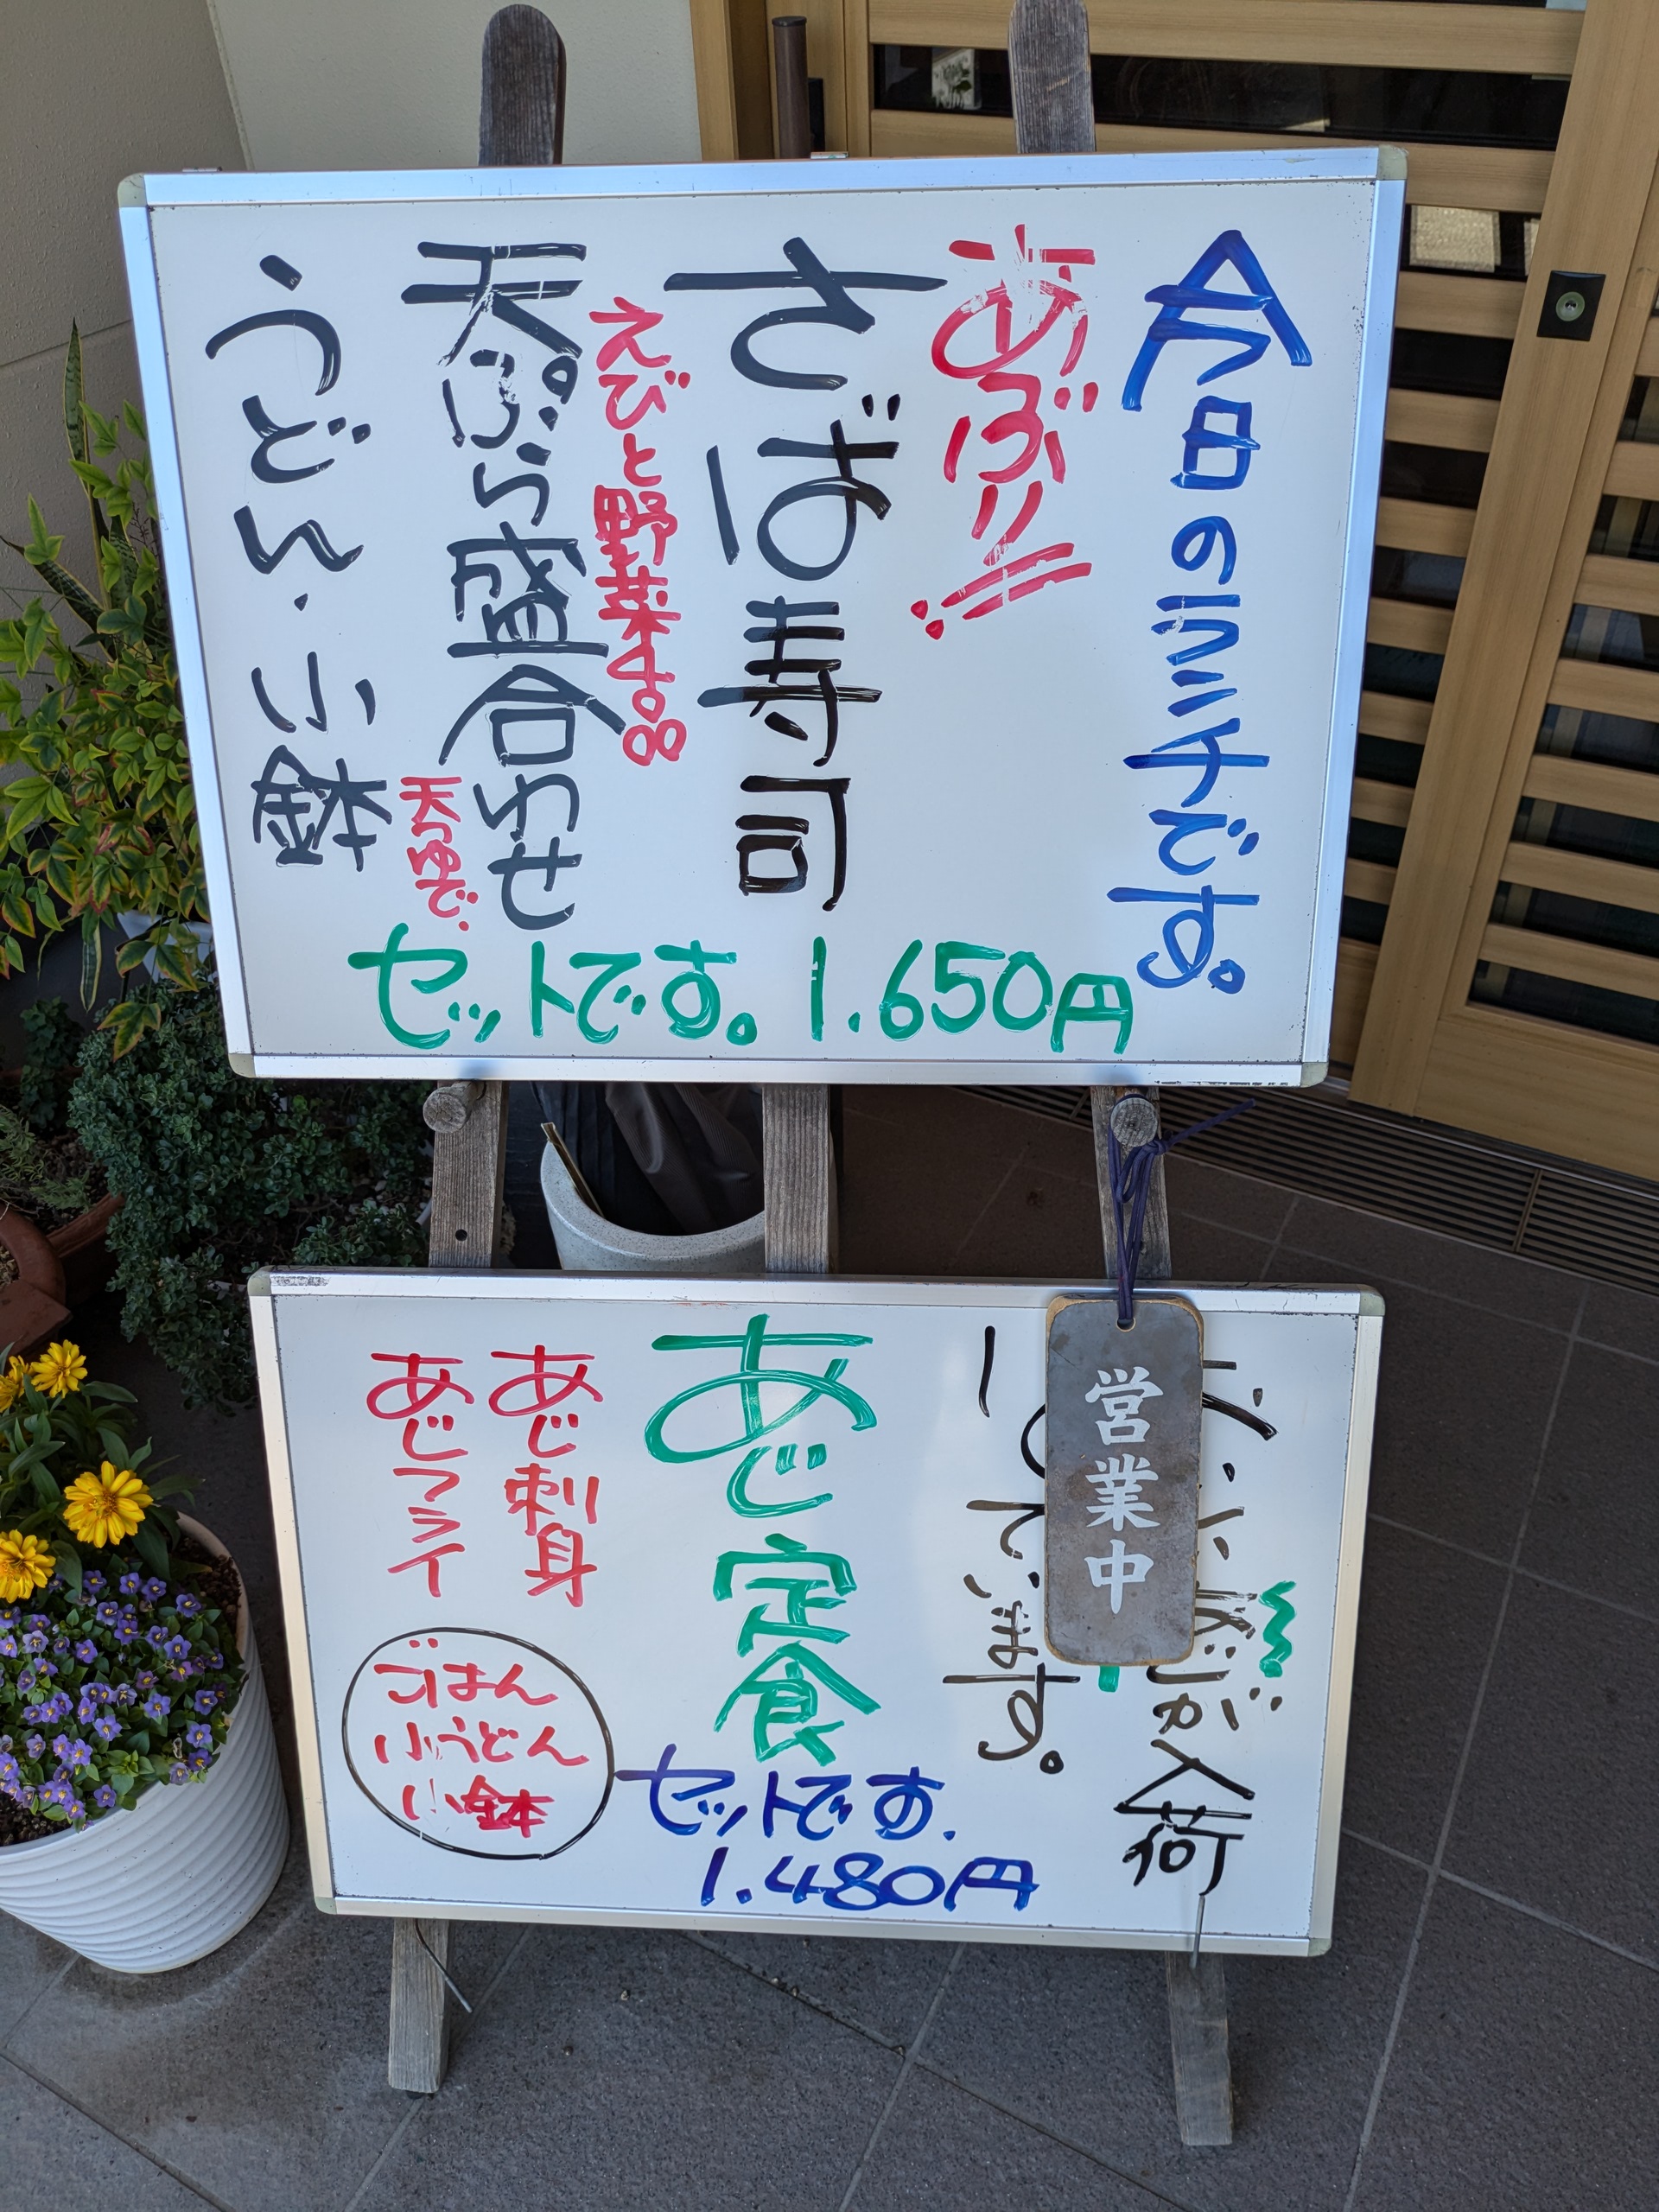 今日のランチです。
あぶり!!
さば寿司
えびと野菜4品
天ぷら盛合わせ
天つゆで.
うどん・小鉢
セットです。1.650円
営業中
が入荷
しています。
あじ定食
あじ刺身
あじフライ
ごはん
小うどん
小鉢
セットです.
1.480円